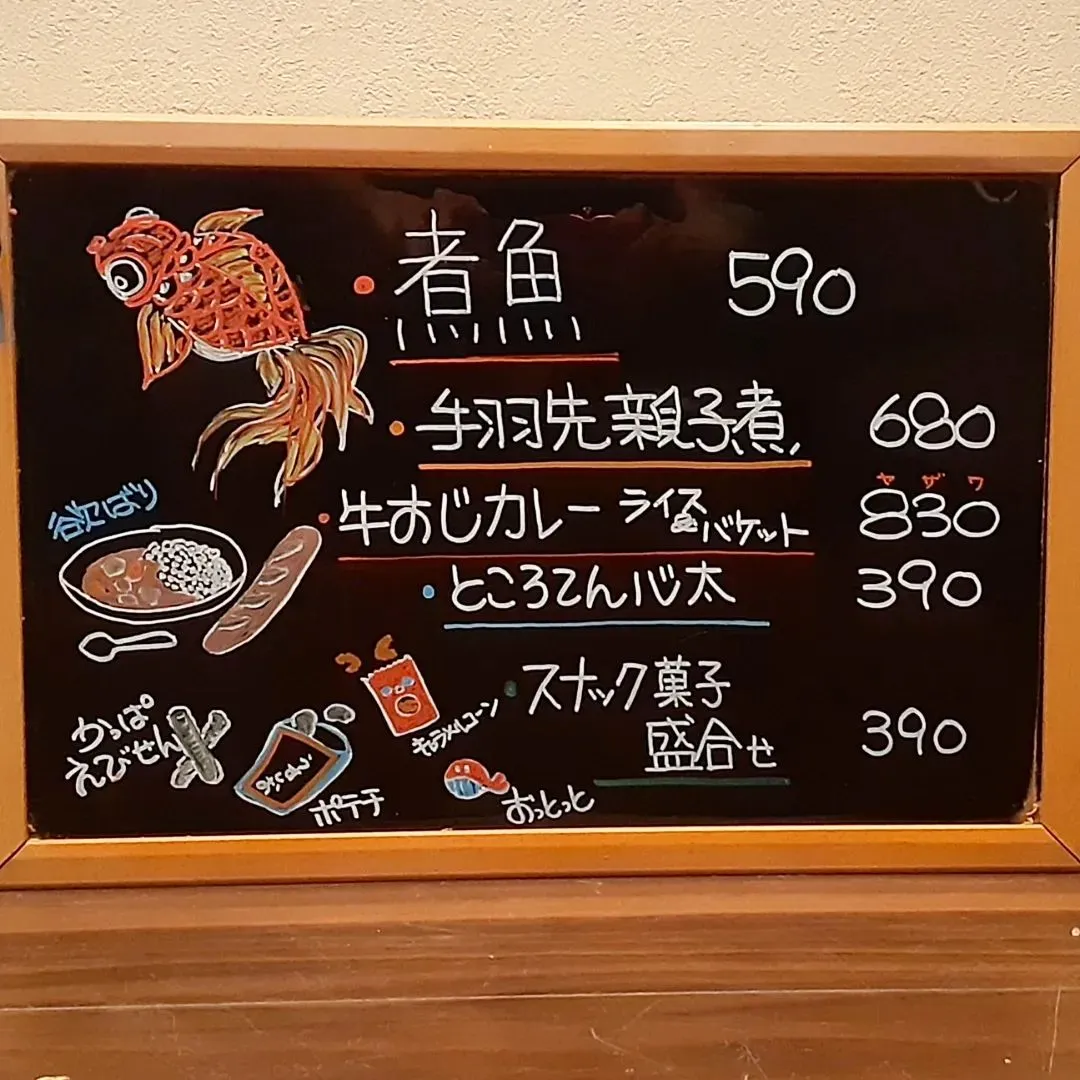 ・煮魚 590
・手羽先親子煮 680
ヤザワ
欲ばり
・牛すじカレー ライス&バケット 830
・ところてん 心太 390
・スナック菓子
盛合せ 390
キャラメルコーン
かっぱ
えびせん
ポテチ
おっとっと